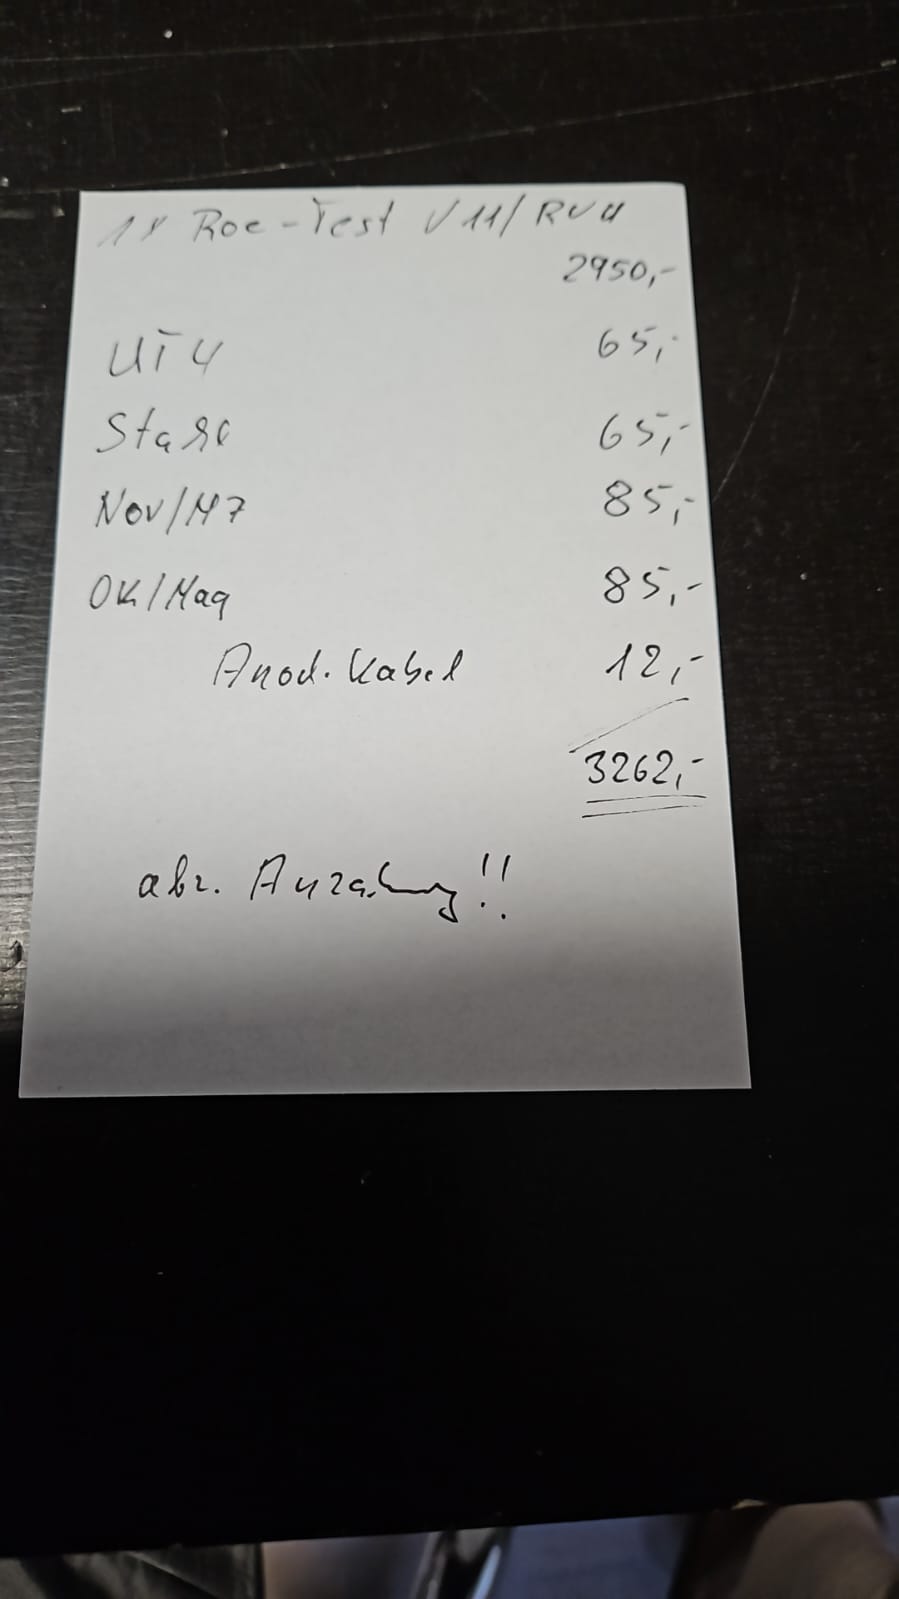 1x Roe-Test V11/RV4
2950,-
UT4 65,-
65,-
Nov/M7 85,-
OK/Mag 85,-
Anod. Kabel 12,-
3262,-
abz. Anzahlung!!